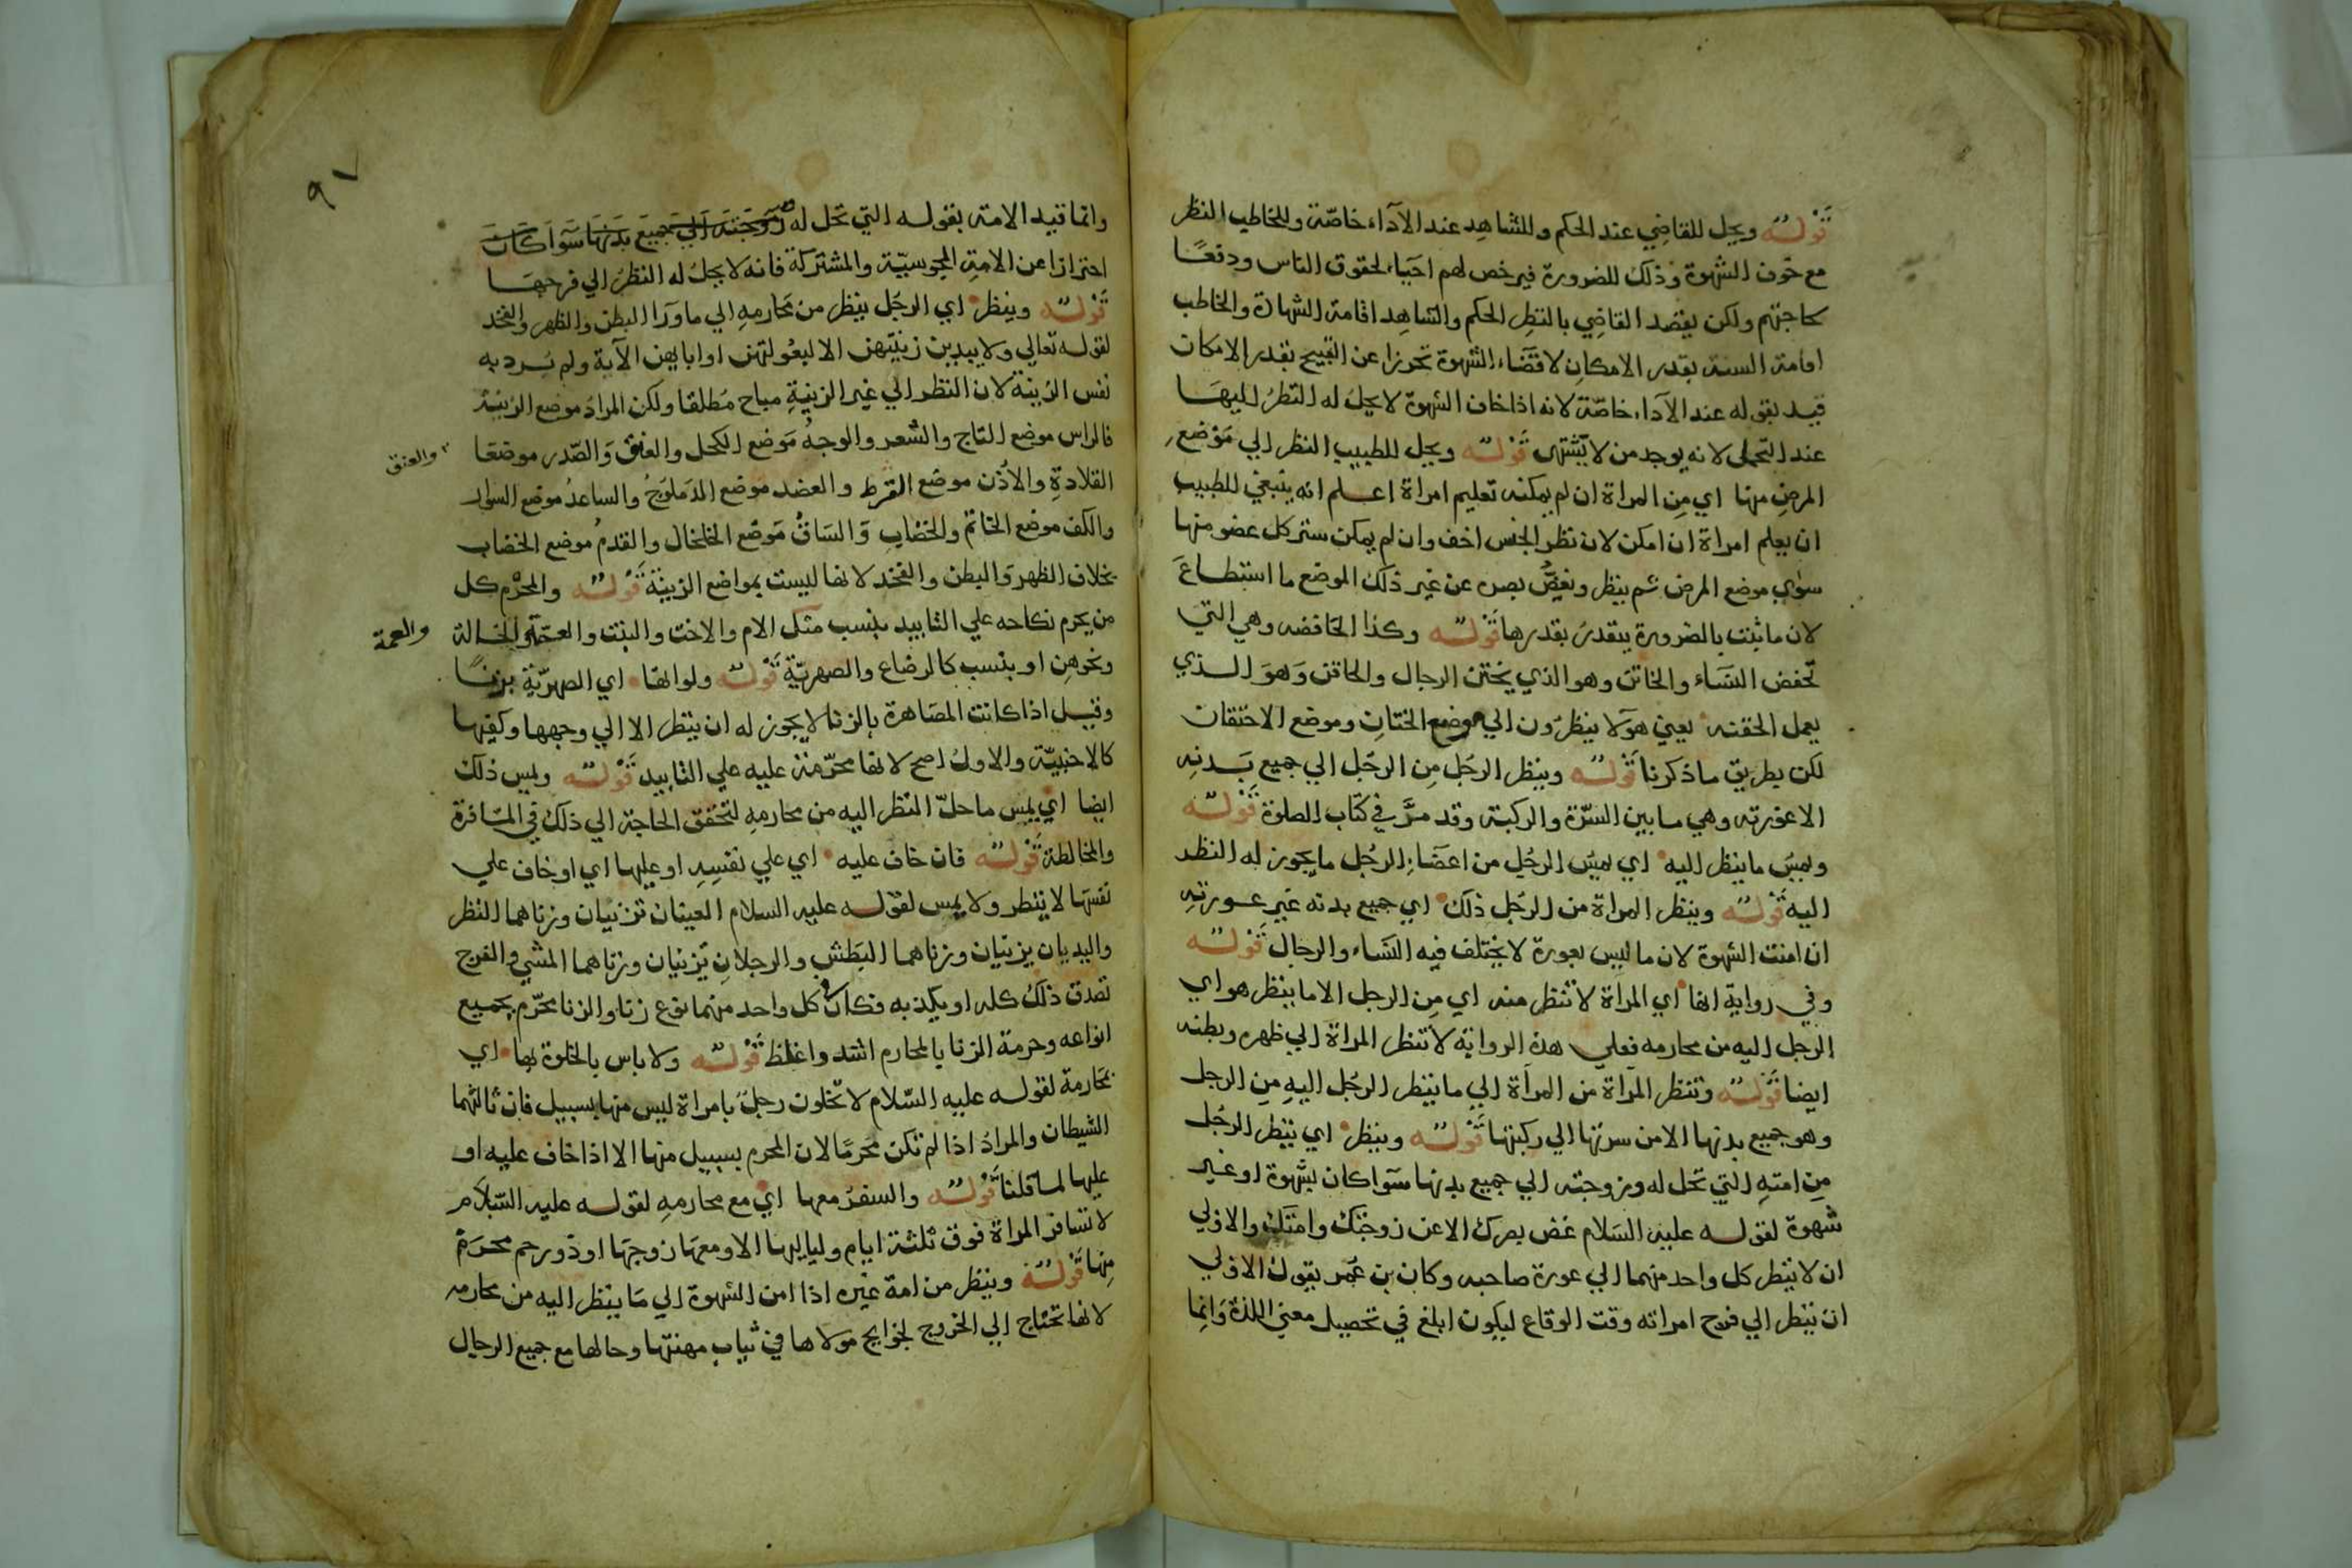 قوله ويحل للقاضي عند الحكم وللشاهد عند الآداء خاصّة وللخاطب النظر
مع خوف الشهوة وذلك للضرورة فيرخص لهم احياء لحقوق الناس ودفعًا
لحاجتهم ولكن يقصد القاضي بالنظر الحكم والشاهد اقامة الشهادة والخاطب
اقامة السنة بقدر الامكان لا قضاء الشهوة تحوزا عن القبيح بقدر الامكان
قيد بقوله عند الآداء خاصّة لانه اذا خاف الشهوة لا يحل له النظر اليها
عند التحمل لانه يوجد من لا يشتهى قوله ويحل للطبيب النظر الي موضع
المرض منها اي من المراة ان لم يمكنه تعليم امراة اعلم انه ينبغي للطبيب
ان يعلم امراة ان امكن لان نظر الجنس اخف وان لم يمكن ستر كل عضو منها
سوي موضع المرض ثم ينظر ويغضّ بصره عن غير ذلك الموضع ما استطاع
لان ما ثبت بالضرورة يتقدر بقدرها قوله وكذا الخافضه وهي التي
تخفض النساء والخاتن وهو الذي يختن الرجال والحاقن وهو الذي
يعمل الحقنه يعني هولا ينظرون الي موضع الختان وموضع الاحتقان
لكن بطريق ما ذكرنا قوله وينظر الرجل من الرجل الي جميع بدنه
الا عورته وهي ما بين السرّة والركبة وقد مرّ في كتاب الصلوة قوله
ويمس ما ينظر اليه اي يمس الرجل من اعضاء الرجل ما يجوز له النظر
اليه قوله وينظر المراة من الرجل ذلك اي جميع بدنه غير عورته
ان امنت الشهوة لان ما ليس بعورة لا يختلف فيه النساء والرجال قوله
وفي رواية انها اي المراة لا تنظر منه اي من الرجل الا ما ينظر هو اي
الرجل اليه من محارمه فعلي هذه الرواية لا تنظر المراة الي ظهره وبطنه
ايضا قوله وتنظر المراة من المراة الي ما ينظر الرجل اليه من الرجل
وهو جميع بدنها الا من سرتها الي ركبتها قوله وينظر اي ينظر الرجل
من امته التي تحل له وزوجته الي جميع بدنها سوا كان بشهوة او غير
شهوة لقوله عليه السلام غض بصرك الا عن زوجتك وامتك والاولي
ان لا ينظر كل واحد منهما الي عورة صاحبه وكان بن عمر يقول الاولي
ان ينظر الي فرج امراته وقت الوقاع ليكون ابلغ في تحصيل معني اللذة وانما
٩٧
وانما قيد الامة بقوله التي تحل له وزوجته الي جميع بدنها سوا كان
احترازا عن الامة المجوسيّة والمشتركة فانه لا يحل له النظر الي فرجها
قوله وينظر اي الرجل ينظر من محارمه الي ما ورآ البطن والظهر والفخد
لقوله تعالي ولا يبدين زينتهن الا لبعولتهن او ابايهن الآية ولم يرد به
نفس الزينة لان النظر الي غير الزينة مباح مطلقا ولكن المراد موضع الزينة
فالراس موضع التاج والشعر والوجه موضع الكحل والعنق والصّدر موضعا
والعنق
القلادة والاذن موضع القرط والعضد موضع الدملوج والساعد موضع السوار
والكف موضع الخاتم والخضاب والساق موضع الخلخال والقدم موضع الخضاب
بخلاف الظهر والبطن والفخد لانها ليست بمواضع الزينة قوله والمحرم كل
من يحرم نكاحه علي التابيد بنسب مثل الام والاخت والبنت والعمة والخالة
والعمة
ونحوهن او بنسب كالرضاع والصهريّة قوله ولو انها اي الصهريّة بزنا
وقيل اذا كانت المصاهرة بالزنا لا يجوز له ان ينظر الا الي وجهها وكفيها
كالاجنبيّة والاول اصح لانها محرّمة عليه علي التابيد قوله ويمس ذلك
ايضا اي يمس ما حلّ النظر اليه من محارمه لتحقق الحاجة الي ذلك في المسافرة
والمخالطة قوله فان خاف عليه اي علي نفسه او عليها اي او خاف علي
نفسها لا ينظر ولا يمس لقوله عليه السلام العينان تزنيان وزناهما النظر
واليديان يزنيان وزناهما البطش والرجلان تزنيان وزناهما المشي والفرج
تصدق ذلك كله او يكذبه فكان كل واحد منهما نوع زنا والزنا محرّم بجميع
انواعه وحرمة الزنا بالمحارم اشد واغلظ قوله ولا باس بالخلوة بها اي
بمحارمه لقوله عليه السّلام لا تخلون رجل بامراة ليس منها بسبيل فان ثالثهما
الشيطان والمراد اذا لم تكن محرمًا لان المحرم بسبيل منها الا اذا خاف عليه او
عليها لما قلنا قوله والسفر معها اي مع محارمه لقوله عليه السّلام
لا تسافر المراة فوق ثلثة ايام ولياليها الا ومعها زوجها او ذو رحم محرم
منها قوله وينظر من امة غيره اذا امن الشهوة الي ما ينظر اليه من محارمه
لانها تحتاج الي الخروج لحوايج مولاها في ثياب مهنتها وحالها مع جميع الرجال